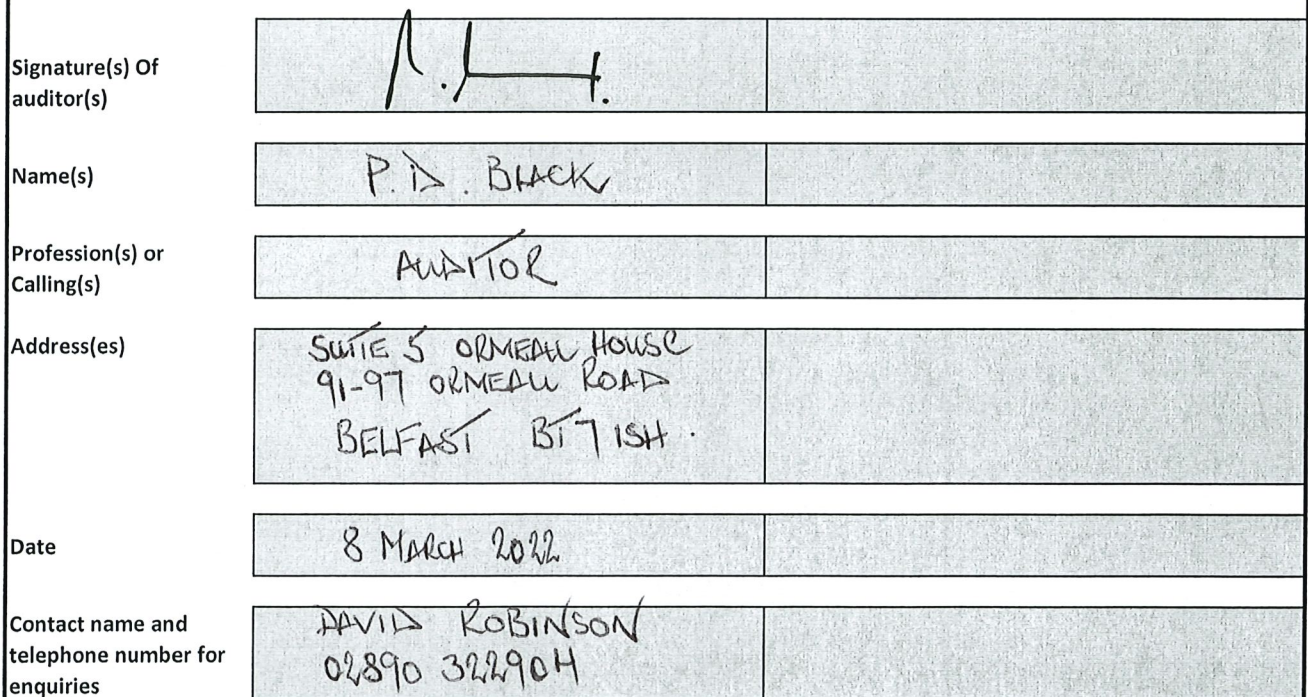 Signature(s) Of
auditor(s)
Name(s)
P. D. BLACK
Profession(s) or
Calling(s)
AUDITOR
Address(es)
SUITE 5 ORMEAU HOUSE
91-97 ORMEAU ROAD
BELFAST BT7 1SH.
Date
8 MARCH 2022
Contact name and
telephone number for
enquiries
DAVID ROBINSON
02890 322904